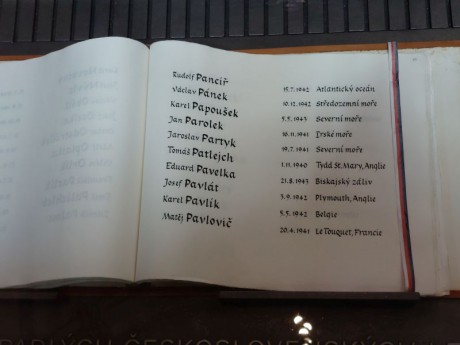 Rudolf Pancíř 15.7.1942 Atlantický oceán
Václav Pánek 10.12.1942 Středozemní moře
Karel Papoušek 5.5.1943 Severní moře
Jan Parolek 16.11.1941 Irské moře
Jaroslav Partyk 19.7.1941 Severní moře
Tomáš Patlejch 1.11.1940 Tydd St. Mary, Anglie
Eduard Pavelka 21.8.1943 Biskajský záliv
Josef Pavlát 3.9.1942 Plymouth, Anglie
Karel Pavlík 5.5.1942 Belgie
Matěj Pavlovič 20.6.1941 Le Touquet, Francie